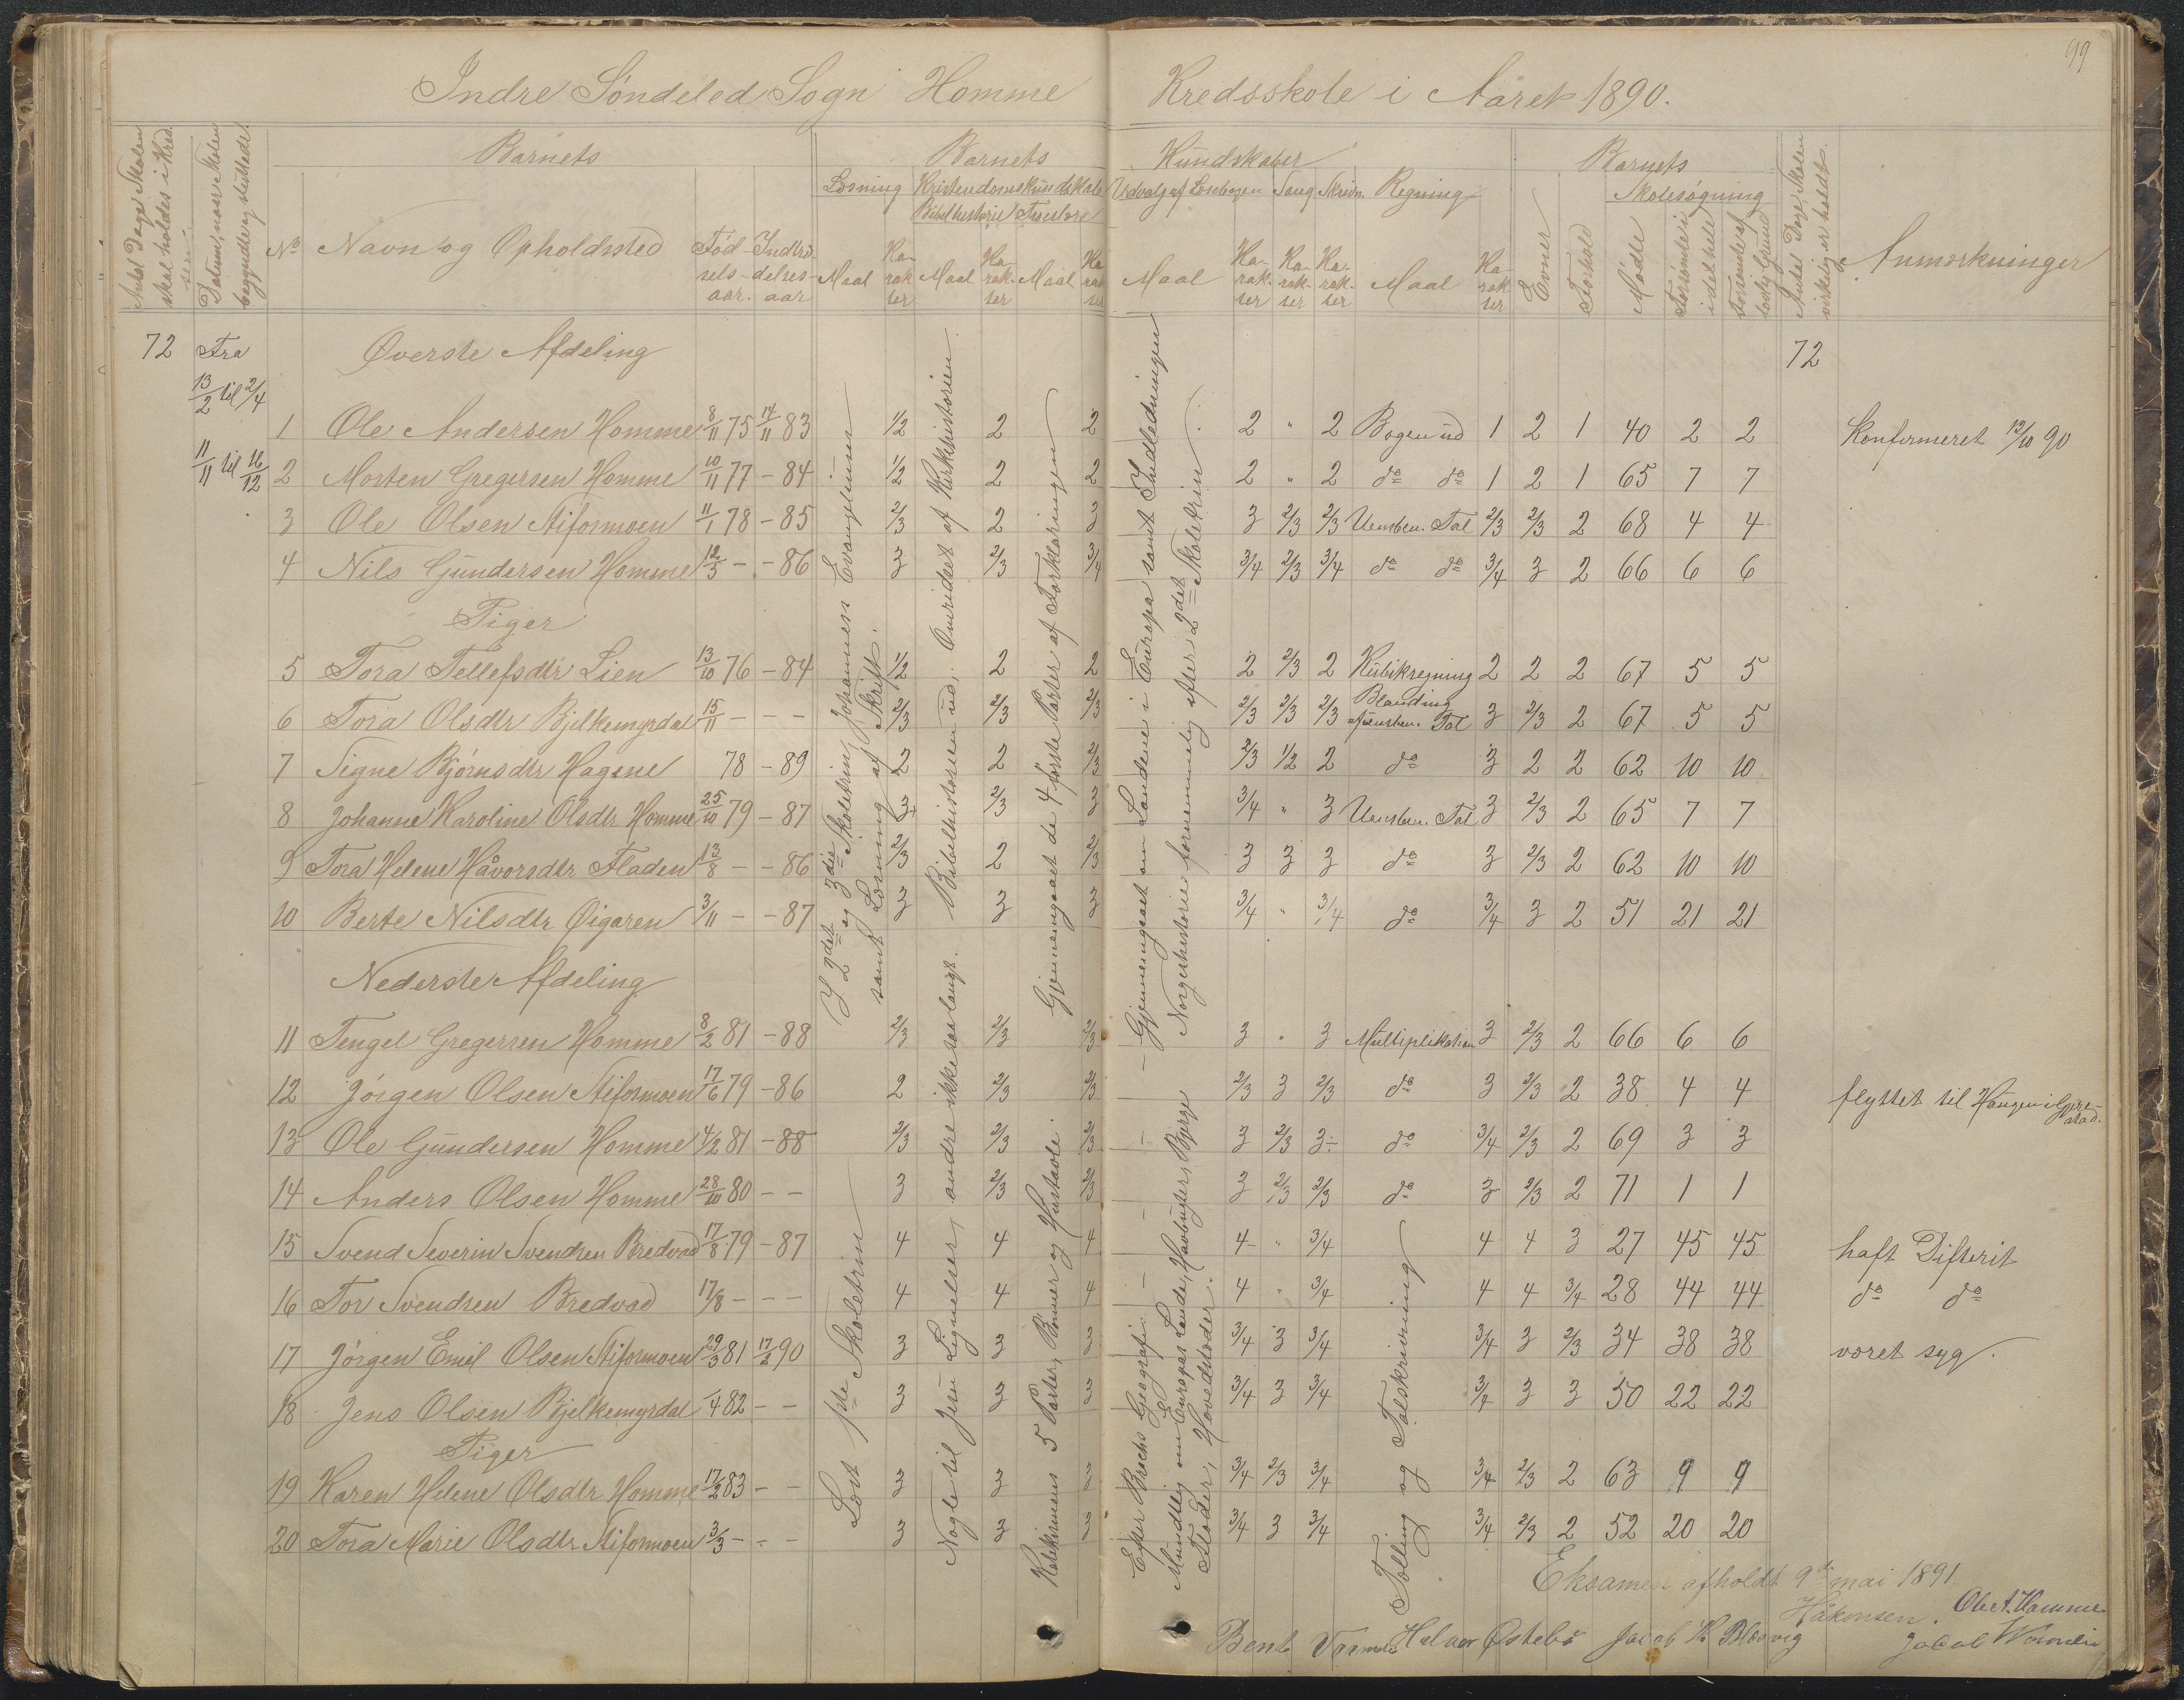 99
Indre Søndeled Sogn Homme Kredsskole i Aaret 1890.
Antal Dage Skolen skal holdes i Kredsen
Datum, naar Skolen begyndte og sluttede.
Barnets
No Navn og Opholdssted Fødselsaar. Indtrædelsesaar
Barnets Kundskaber
Læsning Kristendomskundskab Udvalg af Læsebogen Sang Skrivn. Regning
Bibelhistorie Troeslære
Maal Karakter Maal Karakter Maal Karakter Maal Karakter Karakter Karakter Maal Karakter
Barnets
Evner Forhold Skolesøgning
Mødte Forsømte i det hele Forsømte af lovlig Grund
Antal Dage Skolen virkelig er holdt.
Anmærkninger
72 Fra Øverste Afdeling 72
13/2 til 2/4
11/11 til 16/12
1 Ole Andersen Homme 8/11 75 14/11 83 1/2 2 2 2 " 2 Bogen ud 1 2 1 40 2 2 Konfirmeret 12/10 90
2 Morten Gregersen Homme 10/11 77 - 84 1/2 2 2 2 " 2 do do 1 2 1 65 7 7
3 Ole Olsen Stiformoen 11/1 78 - 85 2/3 2 3 3 2/3 2/3 Uensben. Tal 2/3 2/3 2 68 4 4
4 Nils Gundersen Homme 12/3 - - 86 3 2/3 3/4 3/4 2/3 3/4 do do 3/4 3 2 66 6 6
Piger
5 Tora Tellefsdtr Lien 13/10 76 - 84 1/2 2 2 2 2/3 2 Kubikregning 2 2 2 67 5 5
6 Tora Olsdtr Bjelkemyrdal 15/11 - - - 2/3 2/3 2/3 2/3 2/3 2/3 Blanding af uensben. Tal 3 2/3 2 67 5 5
7 Signe Bjørnsdtr Hagene 78 - 89 2 2 2/3 2/3 1/2 2 do 3 2 2 62 10 10
8 Johanne Karoline Olsdtr Homme 25/10 79 - 87 3+ 2/3 3 3/4 " 3 Uensben. Tal 3 2/3 2 65 7 7
9 Tora Helene Håvorsdtr Fladen 13/8 - - 86 2/3 2 2/3 3 3 3 do 3 2/3 2 62 10 10
10 Berte Nilsdtr Øigaren 3/11 - - 87 3 3 3 3/4 " 3/4 do 3/4 3 2 51 21 21
Nederste Afdeling
11 Tengel Gregersen Homme 8/2 81 - 88 2/3 2/3 2/3 3 " 3 Multiplikation 3 2/3 2 66 6 6
12 Jørgen Olsen Stiformoen 17/6 79 - 86 2 2/3 2/3 2/3 3 2/3 do 3 2/3 2 38 4 4 flyttet til Haugen i Gjerestad.
13 Ole Gundersen Homme 4/2 81 - 88 2/3 2/3 2/3 3 2/3 3÷ do 3/4 2/3 2 69 3 3
14 Anders Olsen Homme 28/10 80 - - 3 2/3 2/3 3 2/3 2/3 do 3 2/3 2 71 1 1
15 Svend Severin Svendsen Bredvad 17/8 79 - 87 4 4 4 4 " 3/4 4 4 3 27 45 45 haft Difterit
16 Tor Svendsen Bredvad 17/8 - - - 4 4 4 4 " 3/4 4 4 3/4 28 44 44 do do
17 Jørgen Emil Olsen Stiformoen 29/3 81 17/2 90 3 3 3 3/4 3 3/4 3/4 3 2/3 34 38 38 været syg.
18 Jens Olsen Bjelkemyrdal /4 82 - - 3 3 3 3/4 3 3/4 3/4 3 3 50 22 22
Piger
19 Karen Helene Olsdtr Homme 17/2 83 - - 3 3 3 3/4 2/3 3/4 3/4 2/3 2 63 9 9
20 Tora Marie Olsdtr Stiformoen 3/3 - - - 3 3 3 3/4 3 3/4 3/4 2/3 2 52 20 20
I 2det og 3die Skoletrin, Johannes Evangelium
samt Læsning af Skrift.
Læst 1ste Skoletrin
Bibelhistorien ud. Omridset af Kirkehistorien
Nogle til Jesu Lignelser, andre ikke saa langt.
Gjennemgaaet de 4 første Parter af Forklaringen
Katekismens 5 Parter, Bønner og Hustavle.
Gjennemgaaet om Landene i Europa samt Indledningen
Norgeshistorie fornemmelig efter 2det Skoletrin.
Efter Brochs Geografi:
Mundtlig om Europas Lande, Havbugter, Bjerge
Floder, Hovedstæder.
Tælling og Talskrivning
Eksamen afholdt 9de mai 1891
Håkonsen. Ole A. Homme
Bent Halvor Østebø Jacob K Jakob